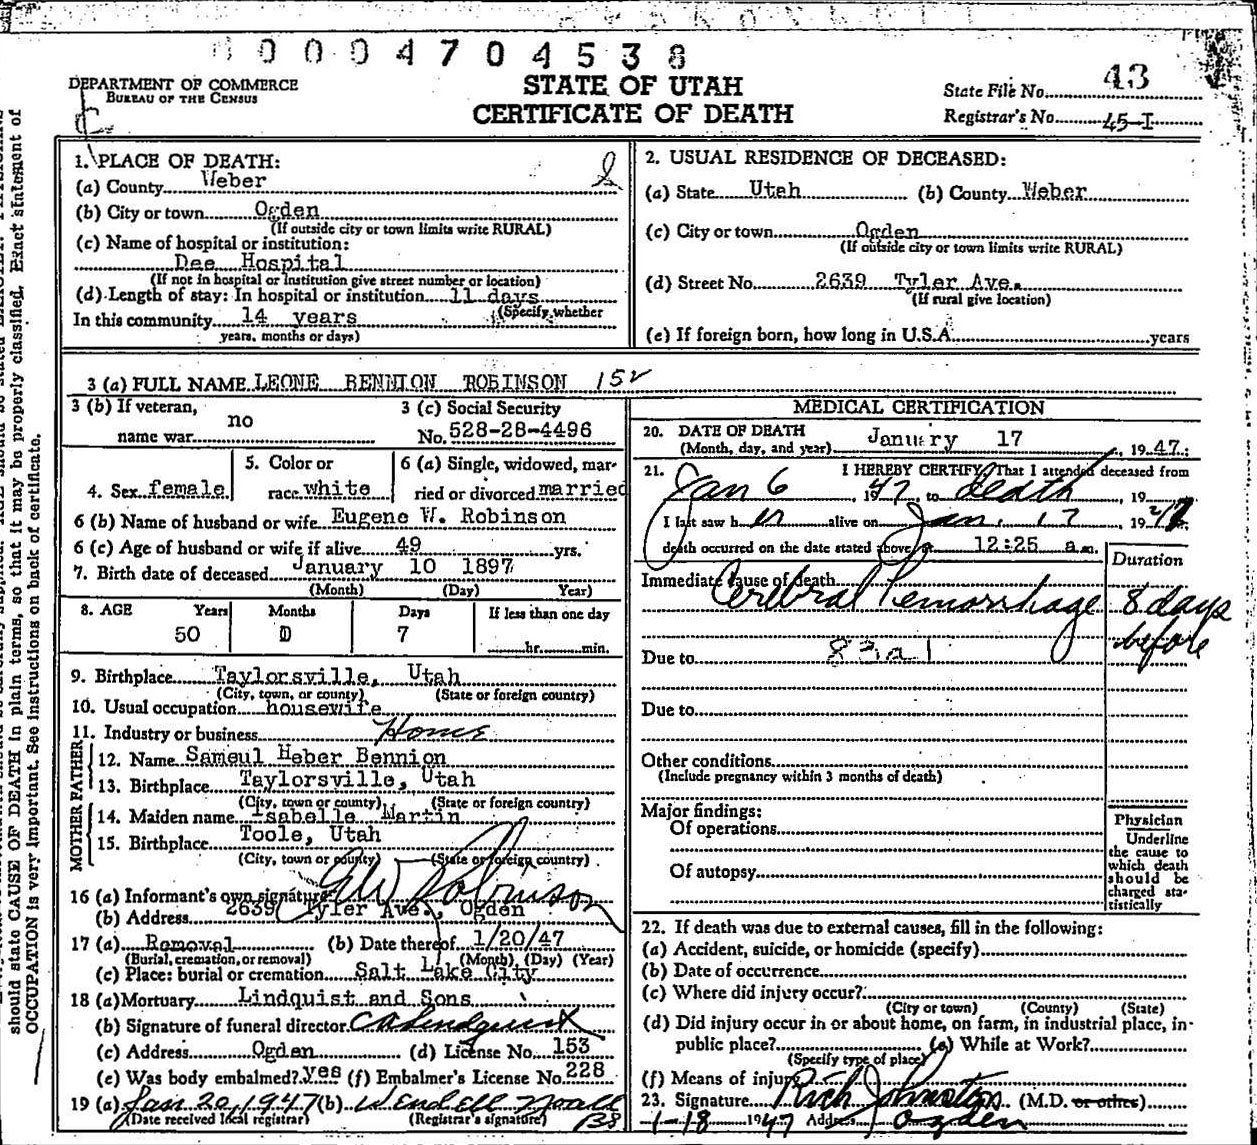 0004704538
DEPARTMENT OF COMMERCE
BUREAU OF THE CENSUS
STATE OF UTAH
CERTIFICATE OF DEATH
State File No. 43
Registrar's No. 45-I
1. PLACE OF DEATH:
(a) County Weber
(b) City or town Ogden
(If outside city or town limits write RURAL)
(c) Name of hospital or institution:
Dee Hospital
(If not in hospital or institution give street number or location)
(d) Length of stay: In hospital or institution 11 days
(Specify whether
In this community 14 years
years, months or days)
2. USUAL RESIDENCE OF DECEASED:
(a) State Utah (b) County Weber
(c) City or town Ogden
(If outside city or town limits write RURAL)
(d) Street No. 2639 Tyler Ave.
(If rural give location)
(e) If foreign born, how long in U.S.A. years
3 (a) FULL NAME LEONE BENNION ROBINSON 152
3 (b) If veteran, no
name war
3 (c) Social Security
No. 528-28-4496
4. Sex female
5. Color or
race white
6 (a) Single, widowed, mar-
ried or divorced married
6 (b) Name of husband or wife Eugene W. Robinson
6 (c) Age of husband or wife if alive 49 yrs.
7. Birth date of deceased January 10 1897
(Month) (Day) Year)
8. AGE Years Months Days If less than one day
50 0 7 hr. min.
9. Birthplace Taylorsville, Utah
(City, town, or county) (State or foreign country)
10. Usual occupation housewife
11. Industry or business Home
FATHER
12. Name Sameul Heber Bennion
13. Birthplace Taylorsville, Utah
(City, town or county) (State or foreign country)
MOTHER
14. Maiden name Isabelle Martin
15. Birthplace Toole, Utah
(City, town or county) (State or foreign country)
16 (a) Informant's own signature EW Robinson
(b) Address 2639 Tyler Ave., Ogden
17 (a) Removal (b) Date thereof 1/20/47
(Burial, cremation, or removal) (Month) (Day) (Year)
(c) Place: burial or cremation Salt Lake City
18 (a) Mortuary Lindquist and Sons
(b) Signature of funeral director CA Lindquist
(c) Address Ogden (d) License No. 153
(e) Was body embalmed? yes (f) Embalmer's License No. 228
19 (a) Jan 20, 1947 (b) Wendell Noall
(Date received local registrar) (Registrar's signature)
MEDICAL CERTIFICATION
20. DATE OF DEATH
(Month, day, and year) January 17, 1947
21. I HEREBY CERTIFY, That I attended deceased from
Jan 6, 1947 to death, 19
I last saw h er alive on Jan. 17 1947
death occurred on the date stated above 12:25 a.m.
Duration
Immediate cause of death
Cerebral Hemorrhage 8 days
before
Due to 83a1
Due to
Other conditions
(Include pregnancy within 3 months of death)
Major findings:
Of operations
Of autopsy
Physician
Underline
the cause to
which death
should be
charged sta-
tistically
22. If death was due to external causes, fill in the following:
(a) Accident, suicide, or homicide (specify)
(b) Date of occurrence
(c) Where did injury occur?
(City or town) (County) (State)
(d) Did injury occur in or about home, on farm, in industrial place, in
public place? (e) While at Work?
(Specify type of place)
(f) Means of injury
23. Signature Rich Johnston (M.D. or other)
1-18 1947 Address Ogden
should state CAUSE OF DEATH in plain terms, so that it may be properly classified. Exact statement of
OCCUPATION is very important. See instructions on back of certificate.